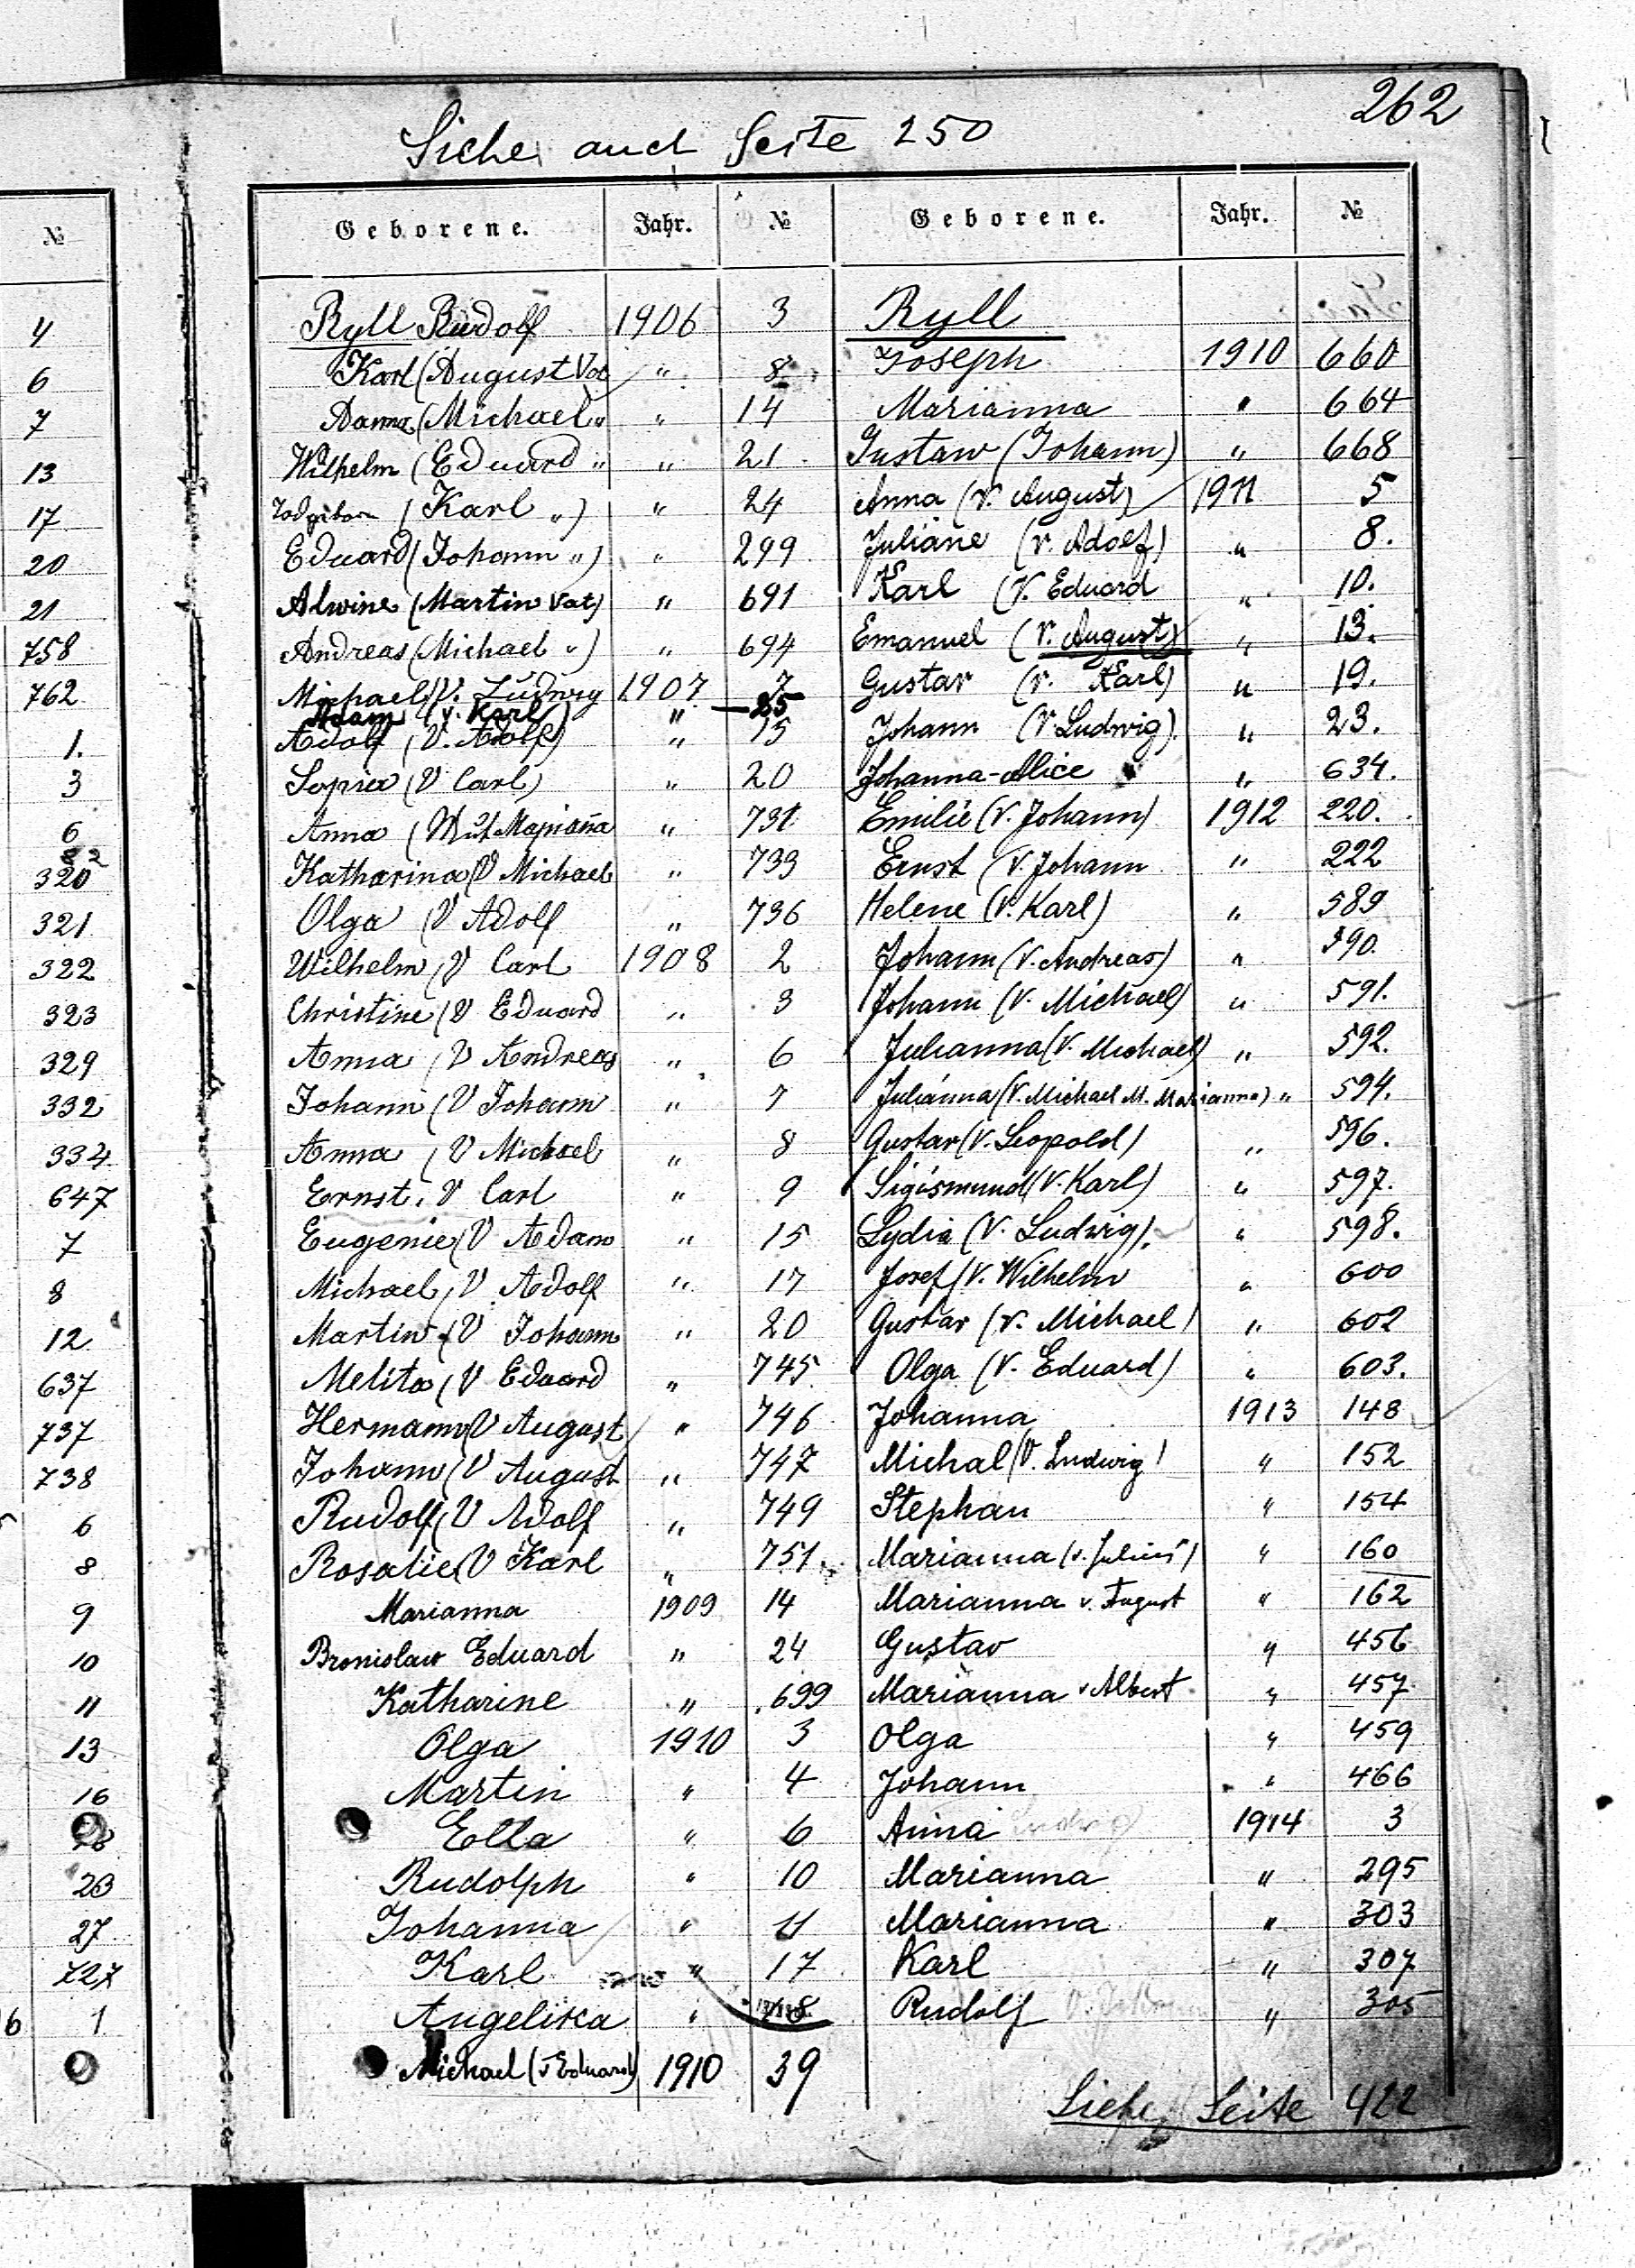 262
Siehe auch Seite 250
№
4
6
7
13
17
20
21
758
762
1.
3
6
320
321
322
323
329
332
334
647
7
8
12
637
737
738
6
8
9
10
11
13
16
23
27
727
6 1
Geborene. Jahr. №
Ryll Rudolf 1906 3
Karl (August Vat " 8
(Michael " " 14
Wilhelm (Eduard " " 21
(Karl ") " 24
Eduard (Johann ") " 299
Alwine (Martin Vat) " 691
Andreas (Michael ") " 694
Michael (V. Ludwig 1907 7
Adam (V. Karl) " 25
Adolf (V. Adolf) " 15
(V Carl) " 20
Anna (Mut " 731
Katharina (V Michael " 733
Olga (V Adolf " 736
Wilhelm (V Carl 1908 2
Christine (V Eduard " 3
Anna (V Andreas " 6
Johann (V Johann " 7
Anna (V Michael " 8
Ernst. V Carl " 9
Eugenie (V Adam " 15
Michael (V Adolf " 17
Martin (V Johann " 20
Melita (V Eduard " 745
Hermann (V August " 746
Johann (V August " 747
Rudolf (V Adolf " 749
Rosalie (V Karl " 751
Marianna 1909 14
Bronislaw Eduard " 24
Katharine " 699
Olga 1910 3
Martin " 4
Ella " 6
Rudolph " 10
Johanna " 11
Karl " 17
Angelika "
Michael (V Eduard) 1910 39
Geborene. Jahr. №
Ryll
Joseph 1910 660
Marianna " 664
Gustaw (Johann) " 668
Anna (V. August) 1911 5
Juliane (V. Adolf) " 8.
Karl (V. Eduard " 10.
Emanuel (V. August) " 13.
Gustav (V. Karl) " 19.
Johann (V. Ludwig). " 23.
Johanna-Alice " 634.
Emilie (V. Johann) 1912 220.
Ernst (V. Johann " 222
Helene (V. Karl) " 589
Johann (V. Andreas) " 590.
Johann (V. Michael) " 591.
Julianna (V. Michael) " 592.
Julianna (V. Michael M. Marianna) " 594.
Gustav (V. Leopold) " 596.
Sigismund (V. Karl) " 597.
Lydia (V. Ludwig). " 598.
Josef (V. Wilhelm " 600
Gustav (V. Michael) " 602
Olga (V. Eduard) " 603.
Johanna 1913 148
Michal (V. Ludwig) " 152
Stephan " 154
Marianna (v. Julius) " 160
Marianna v. August " 162
Gustav " 456
Marianna v Albert " 457
Olga " 459
Johann " 466
Anna 1914 3
Marianna " 295
Marianna " 303
Karl " 307
Rudolf " 305
Siehe Seite 422